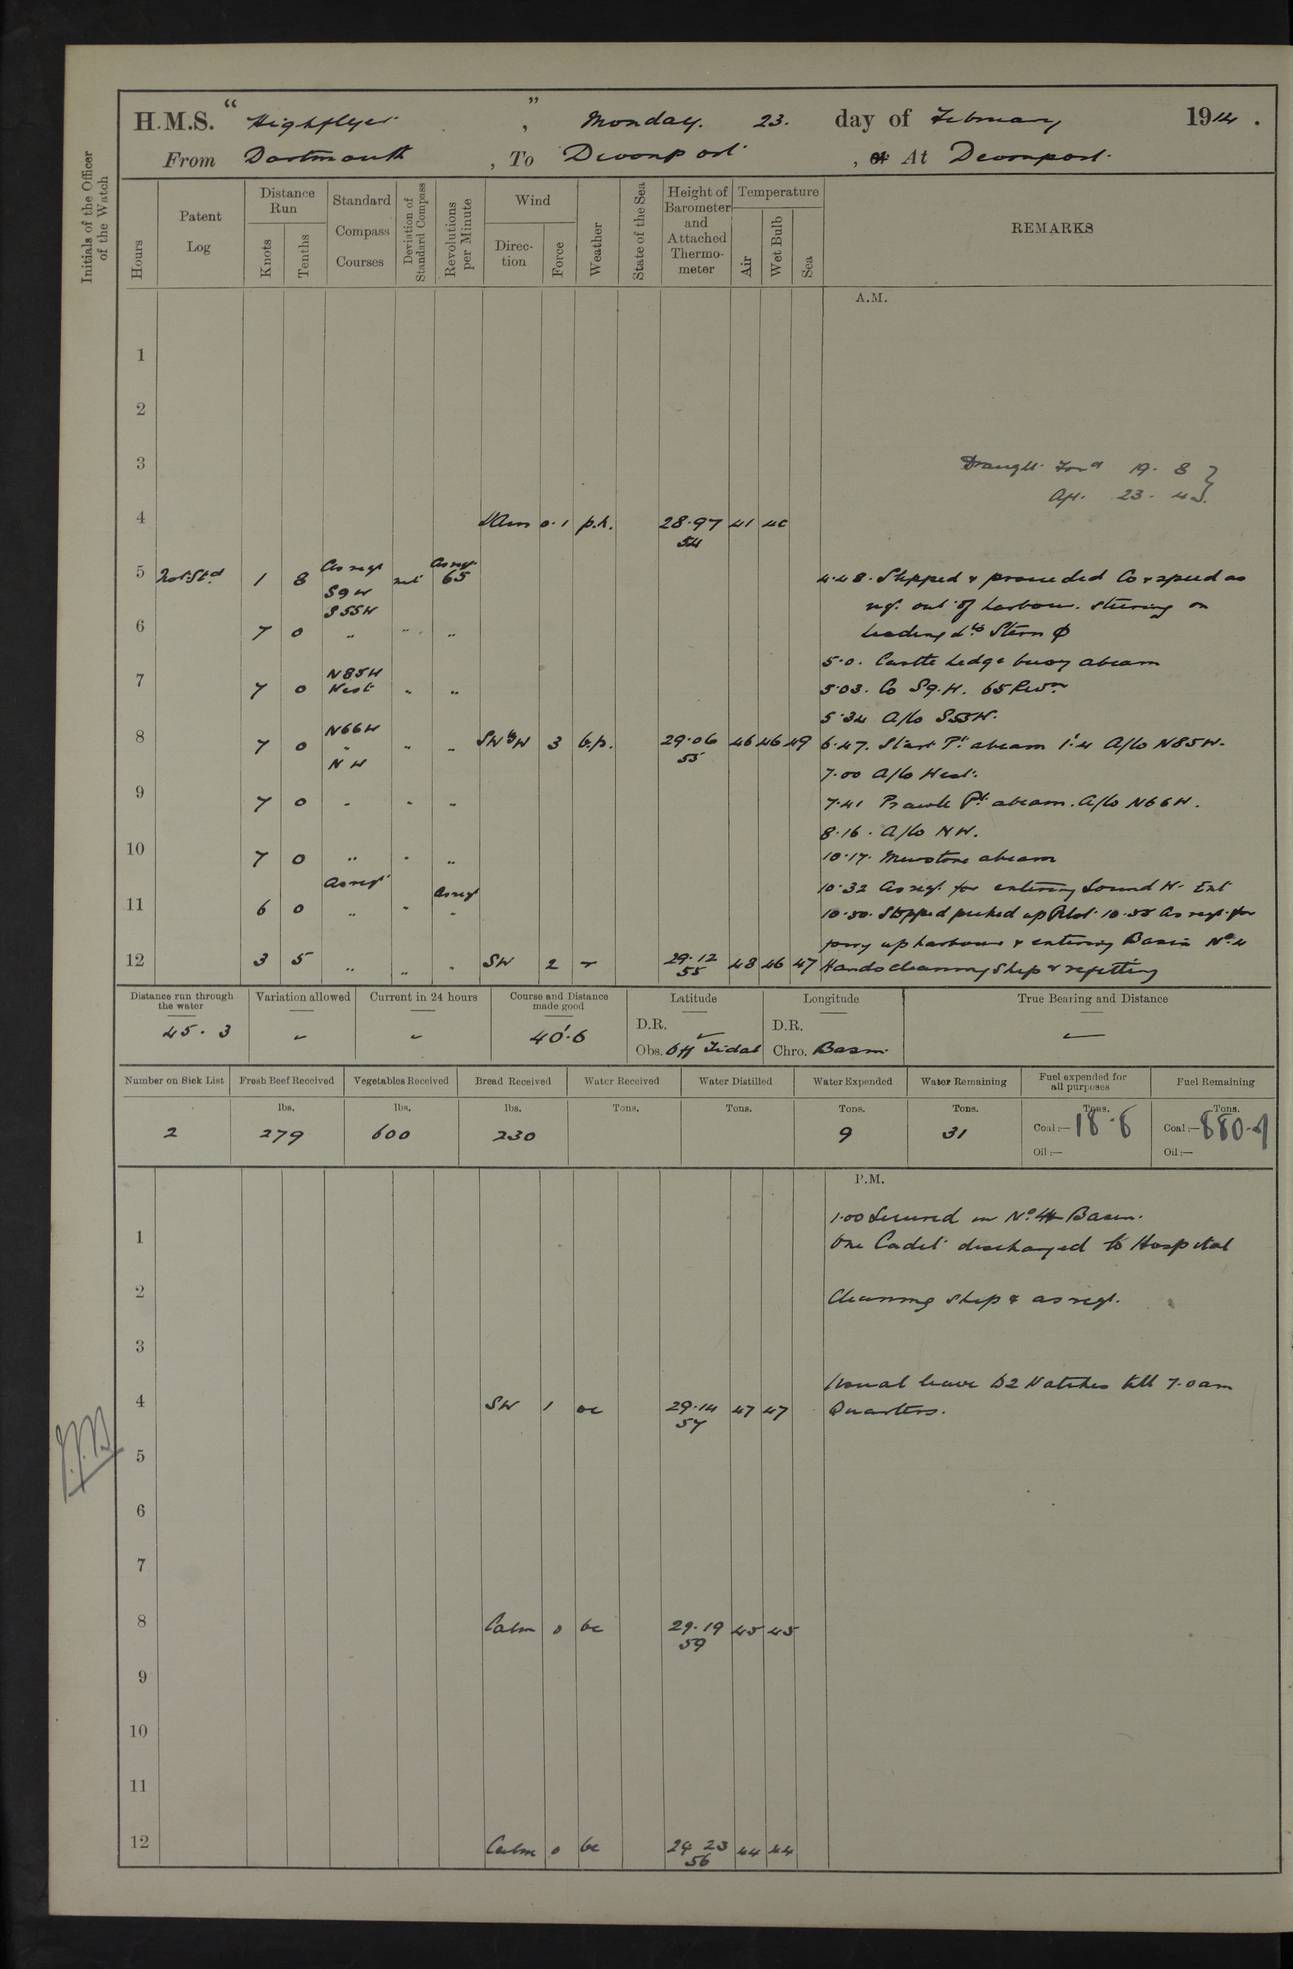 H.M.S. "Highflyer", Monday. 23. day of February 1914.
From Dartmouth, To Devonport, At Devonport.
Initials of the Officer of the Watch
Hours
Patent Log
Distance Run
Knots
Tenths
Standard Compass Courses
Deviation of Standard Compass
Revolutions per Minute
Wind
Direction
Force
Weather
State of the Sea
Height of Barometer and Attached Thermometer
Temperature
Air
Wet Bulb
Sea
REMARKS
A.M.
1
2
3
Draught Ford 19. 8
Aft. 23. 4
4 0.1 28.97 54 41 40
5 Not Std 1 8 As reqt S9W nil As reqt 65
4.48. Slipped & proceeded Co & speed as
reqt. out of harbour. steering on
S55W
6 7 0 " " "
leading lts Stern
5.0. Castle Ledge buoy abeam
N85W
7 7 0 West " "
5.03. Co S9.W. 65 Revs
5.34 A/Co S55W.
N66W
8 7 0 " " " SWbW 3 b.p. 29.06 55 46 46 49
6.47. Start Pt abeam 1'.4 A/Co N85W.
NW
7.00 A/Co West.
9 7 0 " " "
7.41 Prawle Pt abeam. A/Co N66W.
8.16. A/Co NW.
10 7 0 " " "
10.17. Mewstone abeam
As reqt As reqt
10.32 As reqt for entering Sound W. Ent
11 6 0 " " "
10.50. Stopped picked up Pilot. 10.55 As reqt for
up harbour & entering Basin No. 4
12 3 5 " " " SW 2 r 29.12 55 48 46 47
Hands cleaning ship & refitting
Distance run through the water 45.3
Variation allowed
Current in 24 hours
Course and Distance made good 40'.6
Latitude
D.R.
Obs. Off Tidal
Longitude
D.R.
Chro. Basin
True Bearing and Distance
Number on Sick List 2
Fresh Beef Received lbs. 279
Vegetables Received lbs. 600
Bread Received lbs. 230
Water Received Tons.
Water Distilled Tons.
Water Expended Tons. 9
Water Remaining Tons. 31
Fuel expended for all purposes Tons. Coal:— 18.6 Oil:—
Fuel Remaining Tons. Coal:— Oil:—
P.M.
1.00 Secured in No. 4 Basin.
1 One Cadet discharged to Hospital
2 Cleaning ship & as reqt.
3
Usual leave to 2 Watches till 7.0 am
4 SW 1 oc 29.14 57 47 47 Quarters.
5
6
7
8 Calm 0 bc 29.19 59 45 45
9
10
11
12 Calm 0 bc 29 23 56 44 44